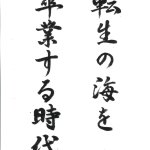 転生の海を
卒業する時代